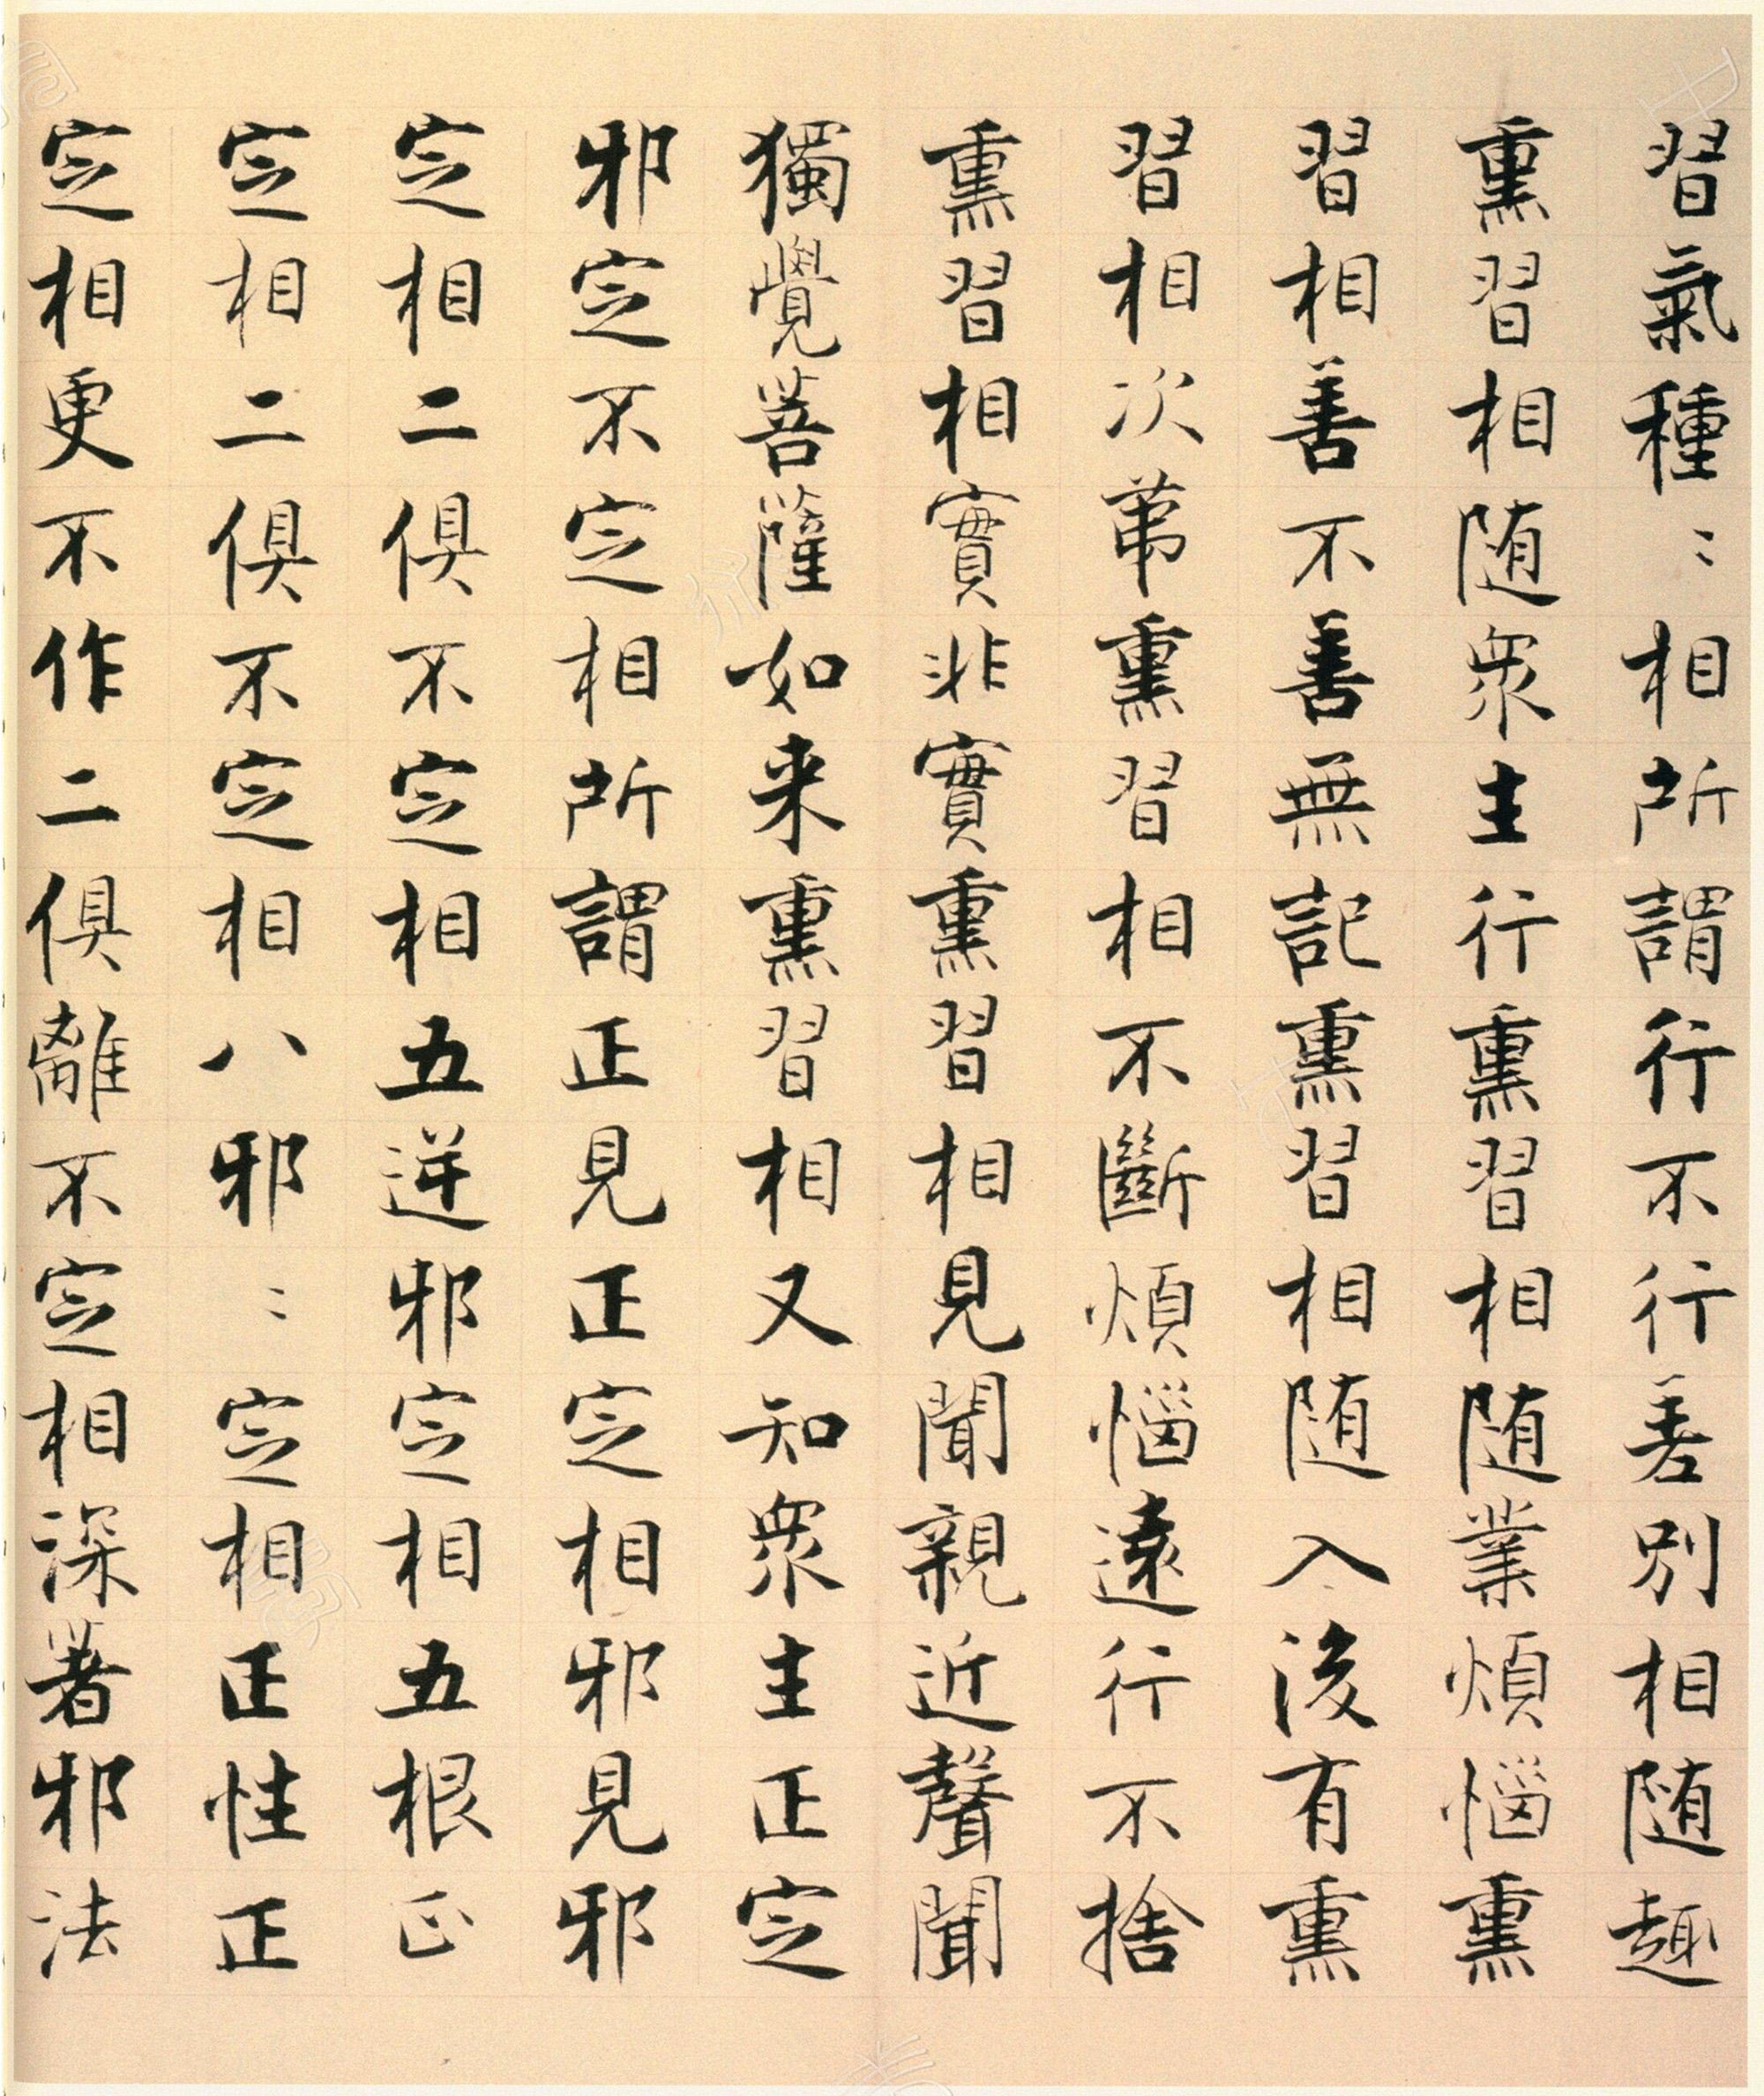 習氣種〻相所謂行不行差別相随趣
熏習相随衆生行熏習相随業煩惱熏
習相善不善無記熏習相随入後有熏
習相次第熏習相不斷煩惱遠行不捨
熏習相實非實熏習相見聞親近聲聞
獨覺菩薩如来熏習相又知衆生正定
邪定不定相所謂正見正定相邪見邪
定相二俱不定相五逆邪定相五根正
定相二俱不定相八邪〻定相正性正
定相更不作二俱離不定相深著邪法